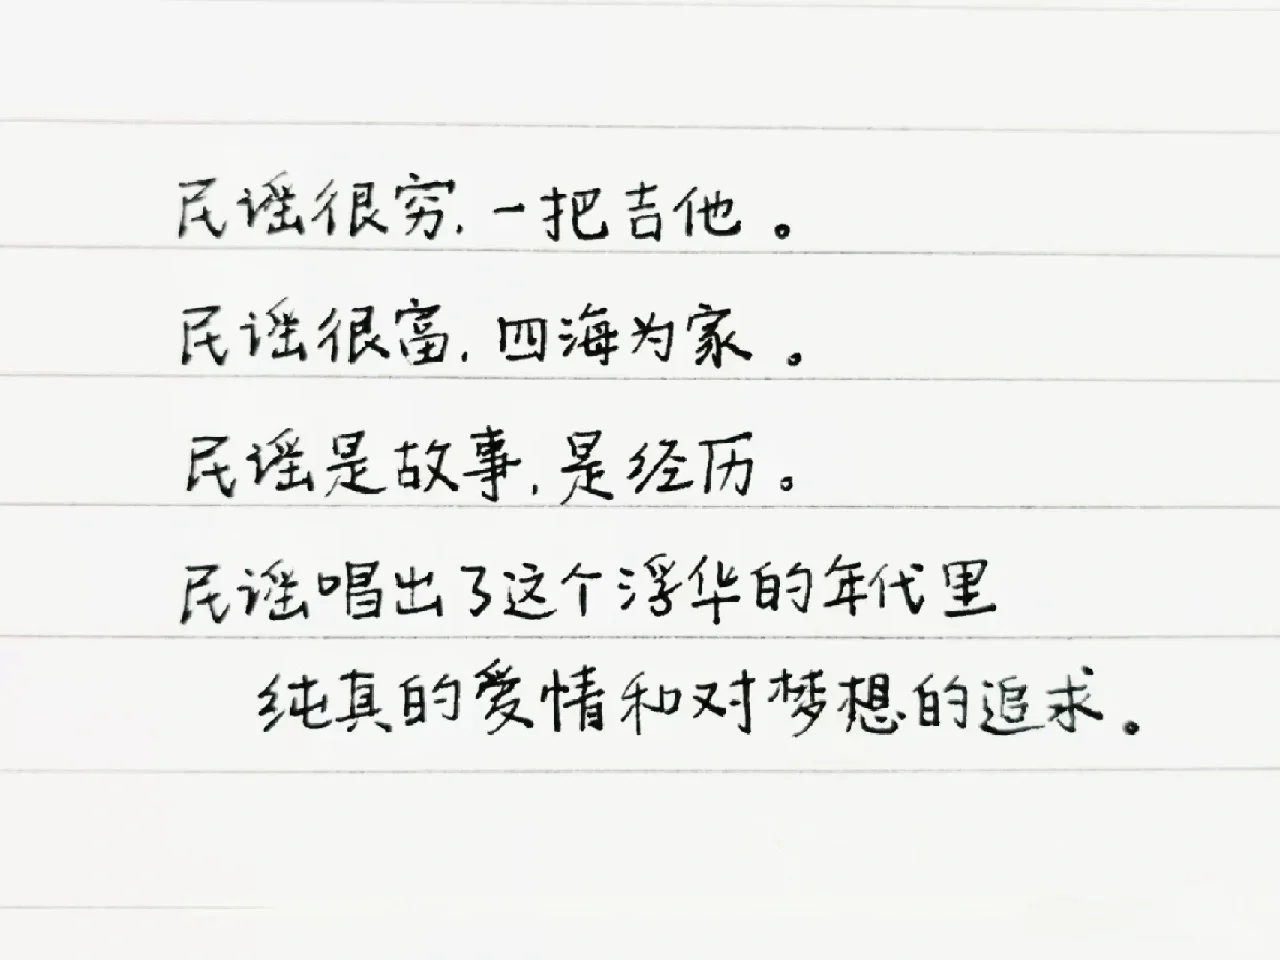 民谣很穷,一把吉他。
民谣很富,四海为家。
民谣是故事,是经历。
民谣唱出了这个浮华的年代里
纯真的爱情和对梦想的追求。